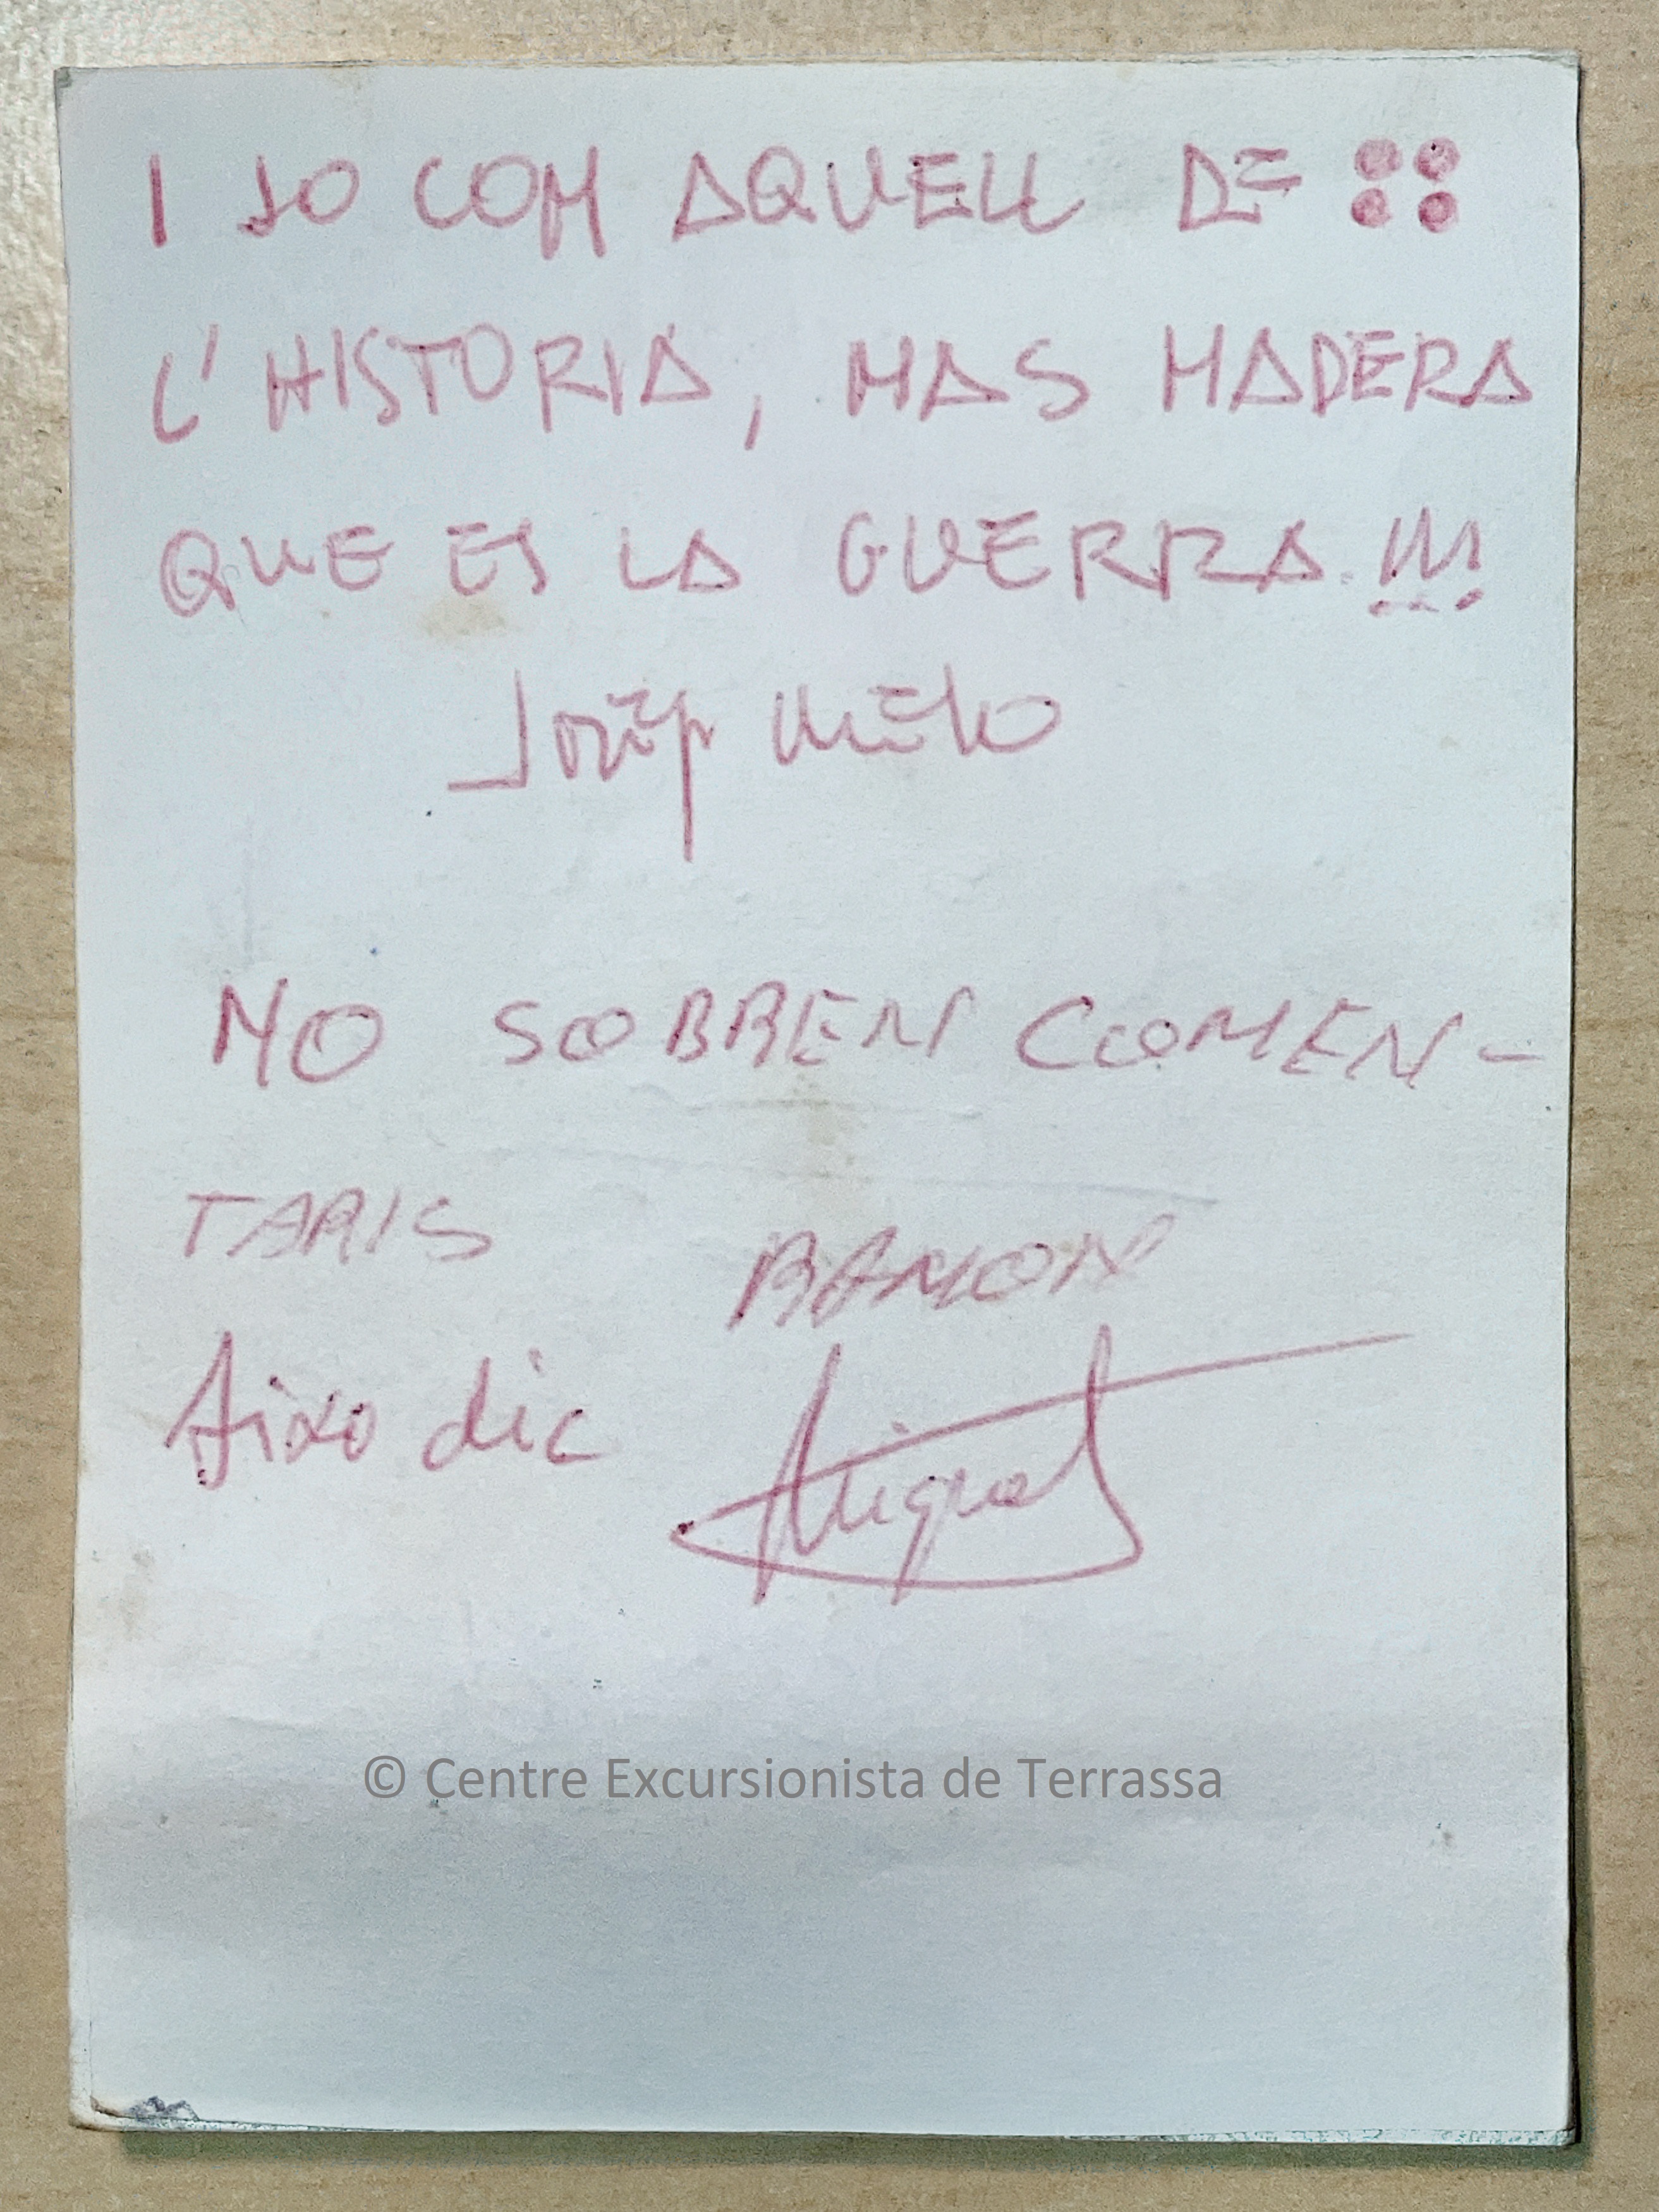 I JO COM AQUELL DE
L'HISTORIA, MAS MADERA
QUE ES LA GUERRA !!!
Josep Melo
NO SOBREN COMEN-
TARIS
RAMON
Aixo dic
Miquel
© Centre Excursionista de Terrassa